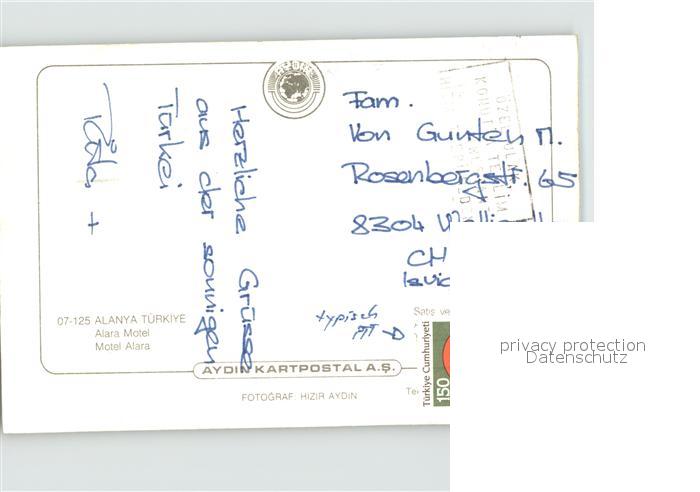 Herzliche Grüsse
aus der sonnigen
Türkei
Fam.
Von Gunten M.
Rosenbergstr. 65
8304
CH
typisch
PTT
07-125 ALANYA TÜRKIYE
Alara Motel
Motel Alara
AYDIN KARTPOSTAL A.Ş.
FOTOĞRAF: HIZIR AYDIN
Satış ve
Türkiye Cumhuriyeti
150
privacy protection
Datenschutz